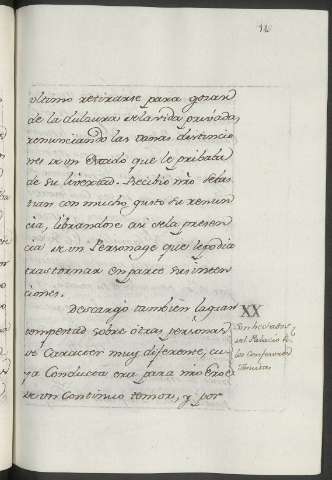 ultimo retirarse para gozar
de la dulzura de la vida privada,
renunciando las vanas distincio
nes de un Estado que le pribaba
de su libertad. Recibió nro Sebas
tian con mucho gusto su renun
cia, librandose asi de la presen
cia de un Personage que le podia
trastornar en parte sus inten
ciones.
Descargó tambien la gran
tempestad sobre otras personas
de Caracter muy diferente, cu
ya Conducta era para nro Eroe
de un Continuo temor, y por
XX
del Palacio
los Confesores
Jesuitas